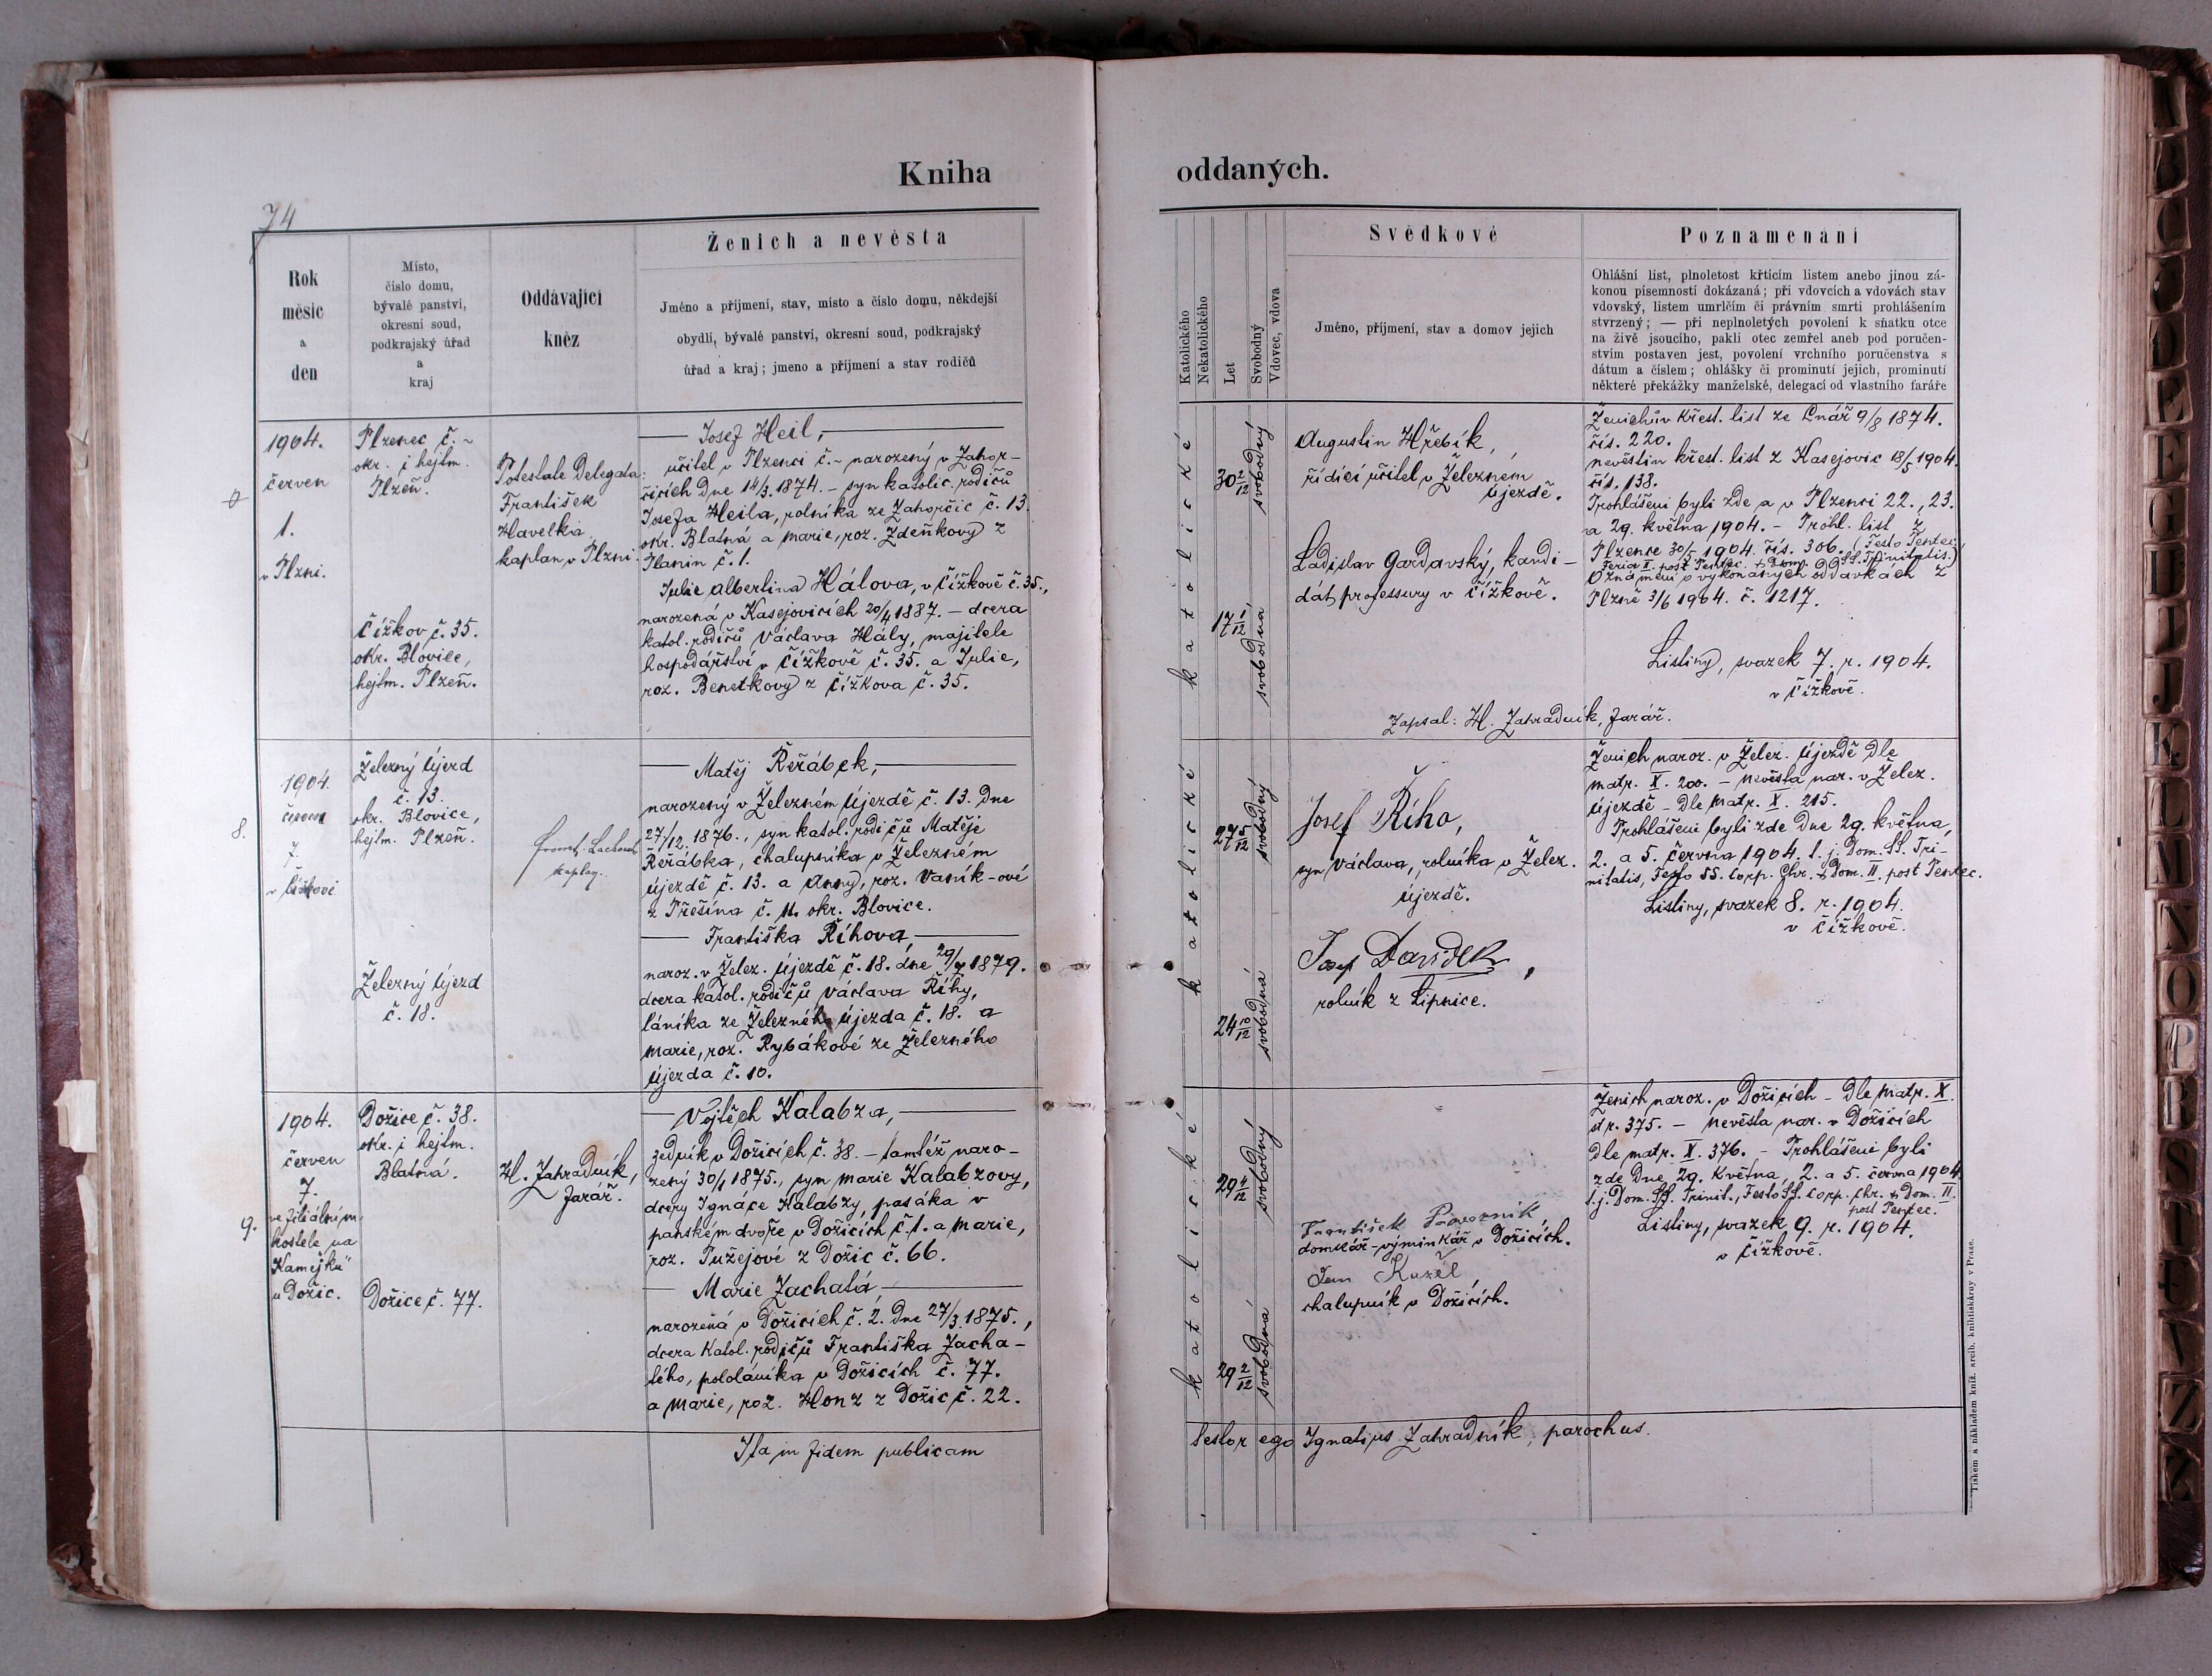 Kniha
74
Rok
měsíc
a
den
Místo,
číslo domu,
bývalé panství,
okresní soud,
podkrajský úřad
a
kraj
Oddávající
kněz
Ženich a nevěsta
Jméno a příjmení, stav, místo a číslo domu, někdejší
obydlí, bývalé panství, okresní soud, podkrajský
úřad a kraj; jmeno a příjmení a stav rodičů
1904.
červen
1.
v Plzni.
Plzenec č. ~
okr. i hejtm.
Plzeň.
Čížkov č. 35.
okr. Blovice,
hejtm. Plzeň.
Potestate Delegata:
František
Havelka
kaplan v Plzni.
Josef Heil,
učitel v Plzenci č. ~ narozený v Zahor-
čicích dne 14/3. 1874. – syn katolic. rodičů
Josefa Heila, rolníka ze Zahorčic č. 13.
okr. Blatná a Marie, roz. Zdeňkovy z
č. 1.
Julie Albertina Hálova, v Čížkově č. 35.,
narozená v Kasejovicích 20/4 1887. – dcera
katol. rodičů Václava Hály, majitele
hospodářství v Čížkově č. 35. a Julie,
roz. Benetkovy z Čížkova č. 35.
8.
1904.
června
7.
v Čížkově
Železný Újezd
č. 13.
okr. Blovice,
hejtm. Plzeň.
Železný Újezd
č. 18.
kaplan.
Matěj Řeřábek,
narozený v Železném Újezdě č. 13. dne
27/12. 1876., syn katol. rodičů Matěje
Řeřábka, chalupníka v Železném
Újezdě č. 13. a Anny, roz. Vaník-ové
z Přešína č. 11. okr. Blovice.
Františka Říhova,
naroz. v Želez. Újezdě č. 18. dne 29/7 1879.
dcera katol. rodičů Václava Říhy,
láníka ze Železného Újezda č. 18. a
Marie, roz. Rybákové ze Železného
Újezda č. 10.
9.
1904.
červen
7.
ve filiálním
kostele na
"Kamejku"
u Dožic.
Dožice č. 38.
okr. i hejtm.
Blatná.
Dožice č. 77.
H. Zahradník,
farář.
Vojtěch Kalabza,
zedník v Dožicích č. 38. – tamtéž naro-
zený 30/1 1875., syn Marie Kalabzovy,
dcery Ignáce Kalabzy, pasáka v
panském dvoře v Dožicích č. 1. a Marie,
roz. Tužejové z Dožic č. 66.
Marie Zachatá,
narozená v Dožicích č. 2. dne 27/3. 1875.,
dcera katol. rodičů Františka Zacha-
tého, pololáníka v Dožicích č. 77.
a Marie, roz. Honz z Dožic č. 22.
Ita in fidem publicam
oddaných.
Katolického
Nekatolického
Let
Svobodný
Vdovec, vdova
Svědkové
Jméno, příjmení, stav a domov jejich
Poznamenání
Ohlášní list, plnoletost křtícím listem anebo jinou zá-
konou písemností dokázaná; při vdovcích a vdovách stav
vdovský, listem umrlčím či právním smrti prohlášením
stvrzený; — při neplnoletých povolení k sňatku otce
na živě jsoucího, pakli otec zemřel aneb pod poručen-
stvím postaven jest, povolení vrchního poručenstva s
dátum a číslem; ohlášky či prominutí jejich, prominutí
některé překážky manželské, delegací od vlastního faráře
katolické
30 2/12
svobodný
17 1/12
svobodna
Augustin Hřebík,
řídící učitel v Železném
Újezdě.
Ladislav Gardavský, kandi-
dát professury v Čížkově.
Ženichův křest. list ze Lnář 9/8 1874.
čís. 220.
nevěstin křest. list z Kasejovic 18/5 1904.
čís. 138.
Prohlášeni byli zde a v Plzenci 22., 23.
a 29. května 1904. – Prohl. list z
Plzence 30/5 1904. čís. 306. (Festo Pentec.,
Feria II. post Pentec. & Dom. SS. Trinitatis.)
Oznámení o vykonaných oddavkách z
Plzně 3/6 1904. č. 1217.
Listiny, svazek 7. r. 1904.
v Čížkově.
Zapsal: H. Zahradník, farář.
katolické
27 5/12
svobodný
24 10/12
svobodná
Josef Říha,
syn Václava, rolníka v Želez.
Újezdě.
Josef Davídek,
rolník z Lipnice.
Ženich naroz. v Želez. Újezdě dle
matr. X. 200. – nevěsta nar. v Želez.
Újezdě – dle matr. X. 215.
Prohlášeni byli zde dne 29. května,
2. a 5. června 1904. t. j. Dom. SS. Tri-
nitatis, Festo SS. Corp. Chr. & Dom. II. post Pentec.
Listiny, svazek 8. r. 1904.
v Čížkově.
katolické
29 4/12
svobodný
29 2/12
svobodná
František
domkář-výminkář v Dožicích.
Jan Kuzel
chalupník v Dožicích.
Ženich naroz. v Dožicích – dle matr. X.
str. 375. – nevěsta nar. v Dožicích
dle matr. X. 376. – Prohlášeni byli
zde dne 29. května, 2. a 5. června 1904.
t. j. Dom. SS. Trinit., Festo SS. Corp. Chr. & Dom. II.
post Pentec.
Listiny, svazek 9. r. 1904.
v Čížkově.
testor ego Ignatius Zahradník, parochus.
Tiskem a nákladem kníž. arcib. knihtiskárny v Praze.